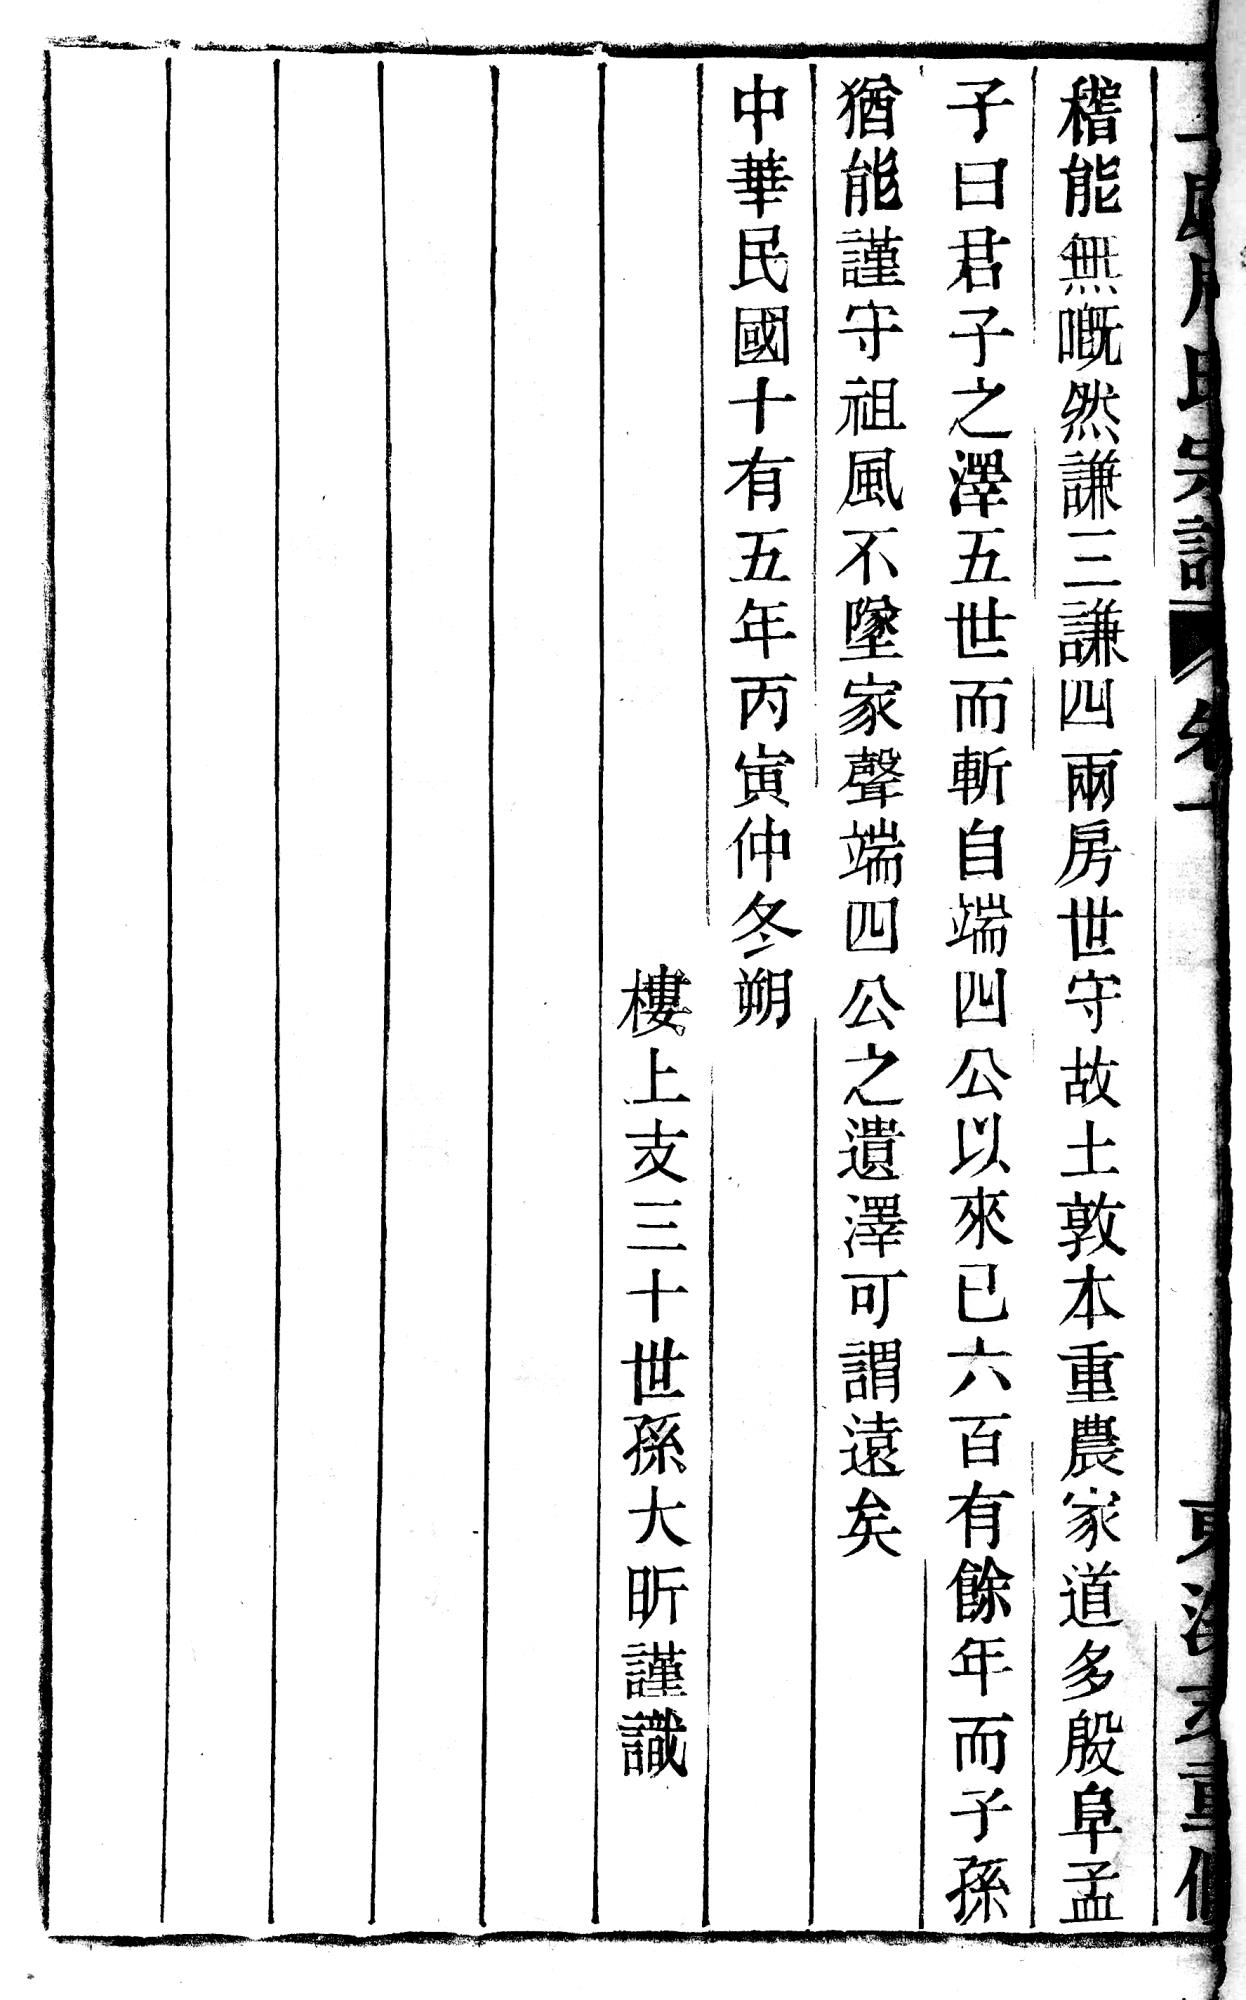 氏宗譜 卷十
稽能無嘅然謙三謙四兩房世守故土敦本重農家道多殷阜孟
子曰君子之澤五世而斬自端四公以來已六百有餘年而子孫
猶能謹守祖風不墜家聲端四公之遺澤可謂遠矣
中華民國十有五年丙寅仲冬朔
樓上支三十世孫大昕謹識